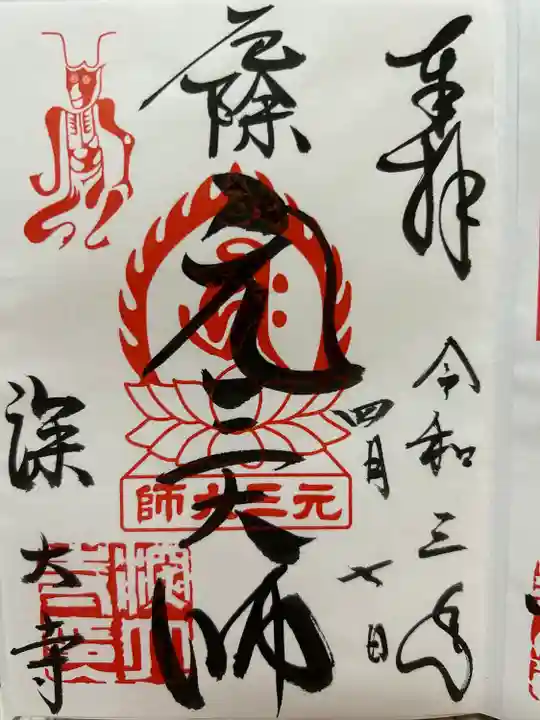 奉拝
令和三年
四月
七日
元三大師
師大三元
深大寺